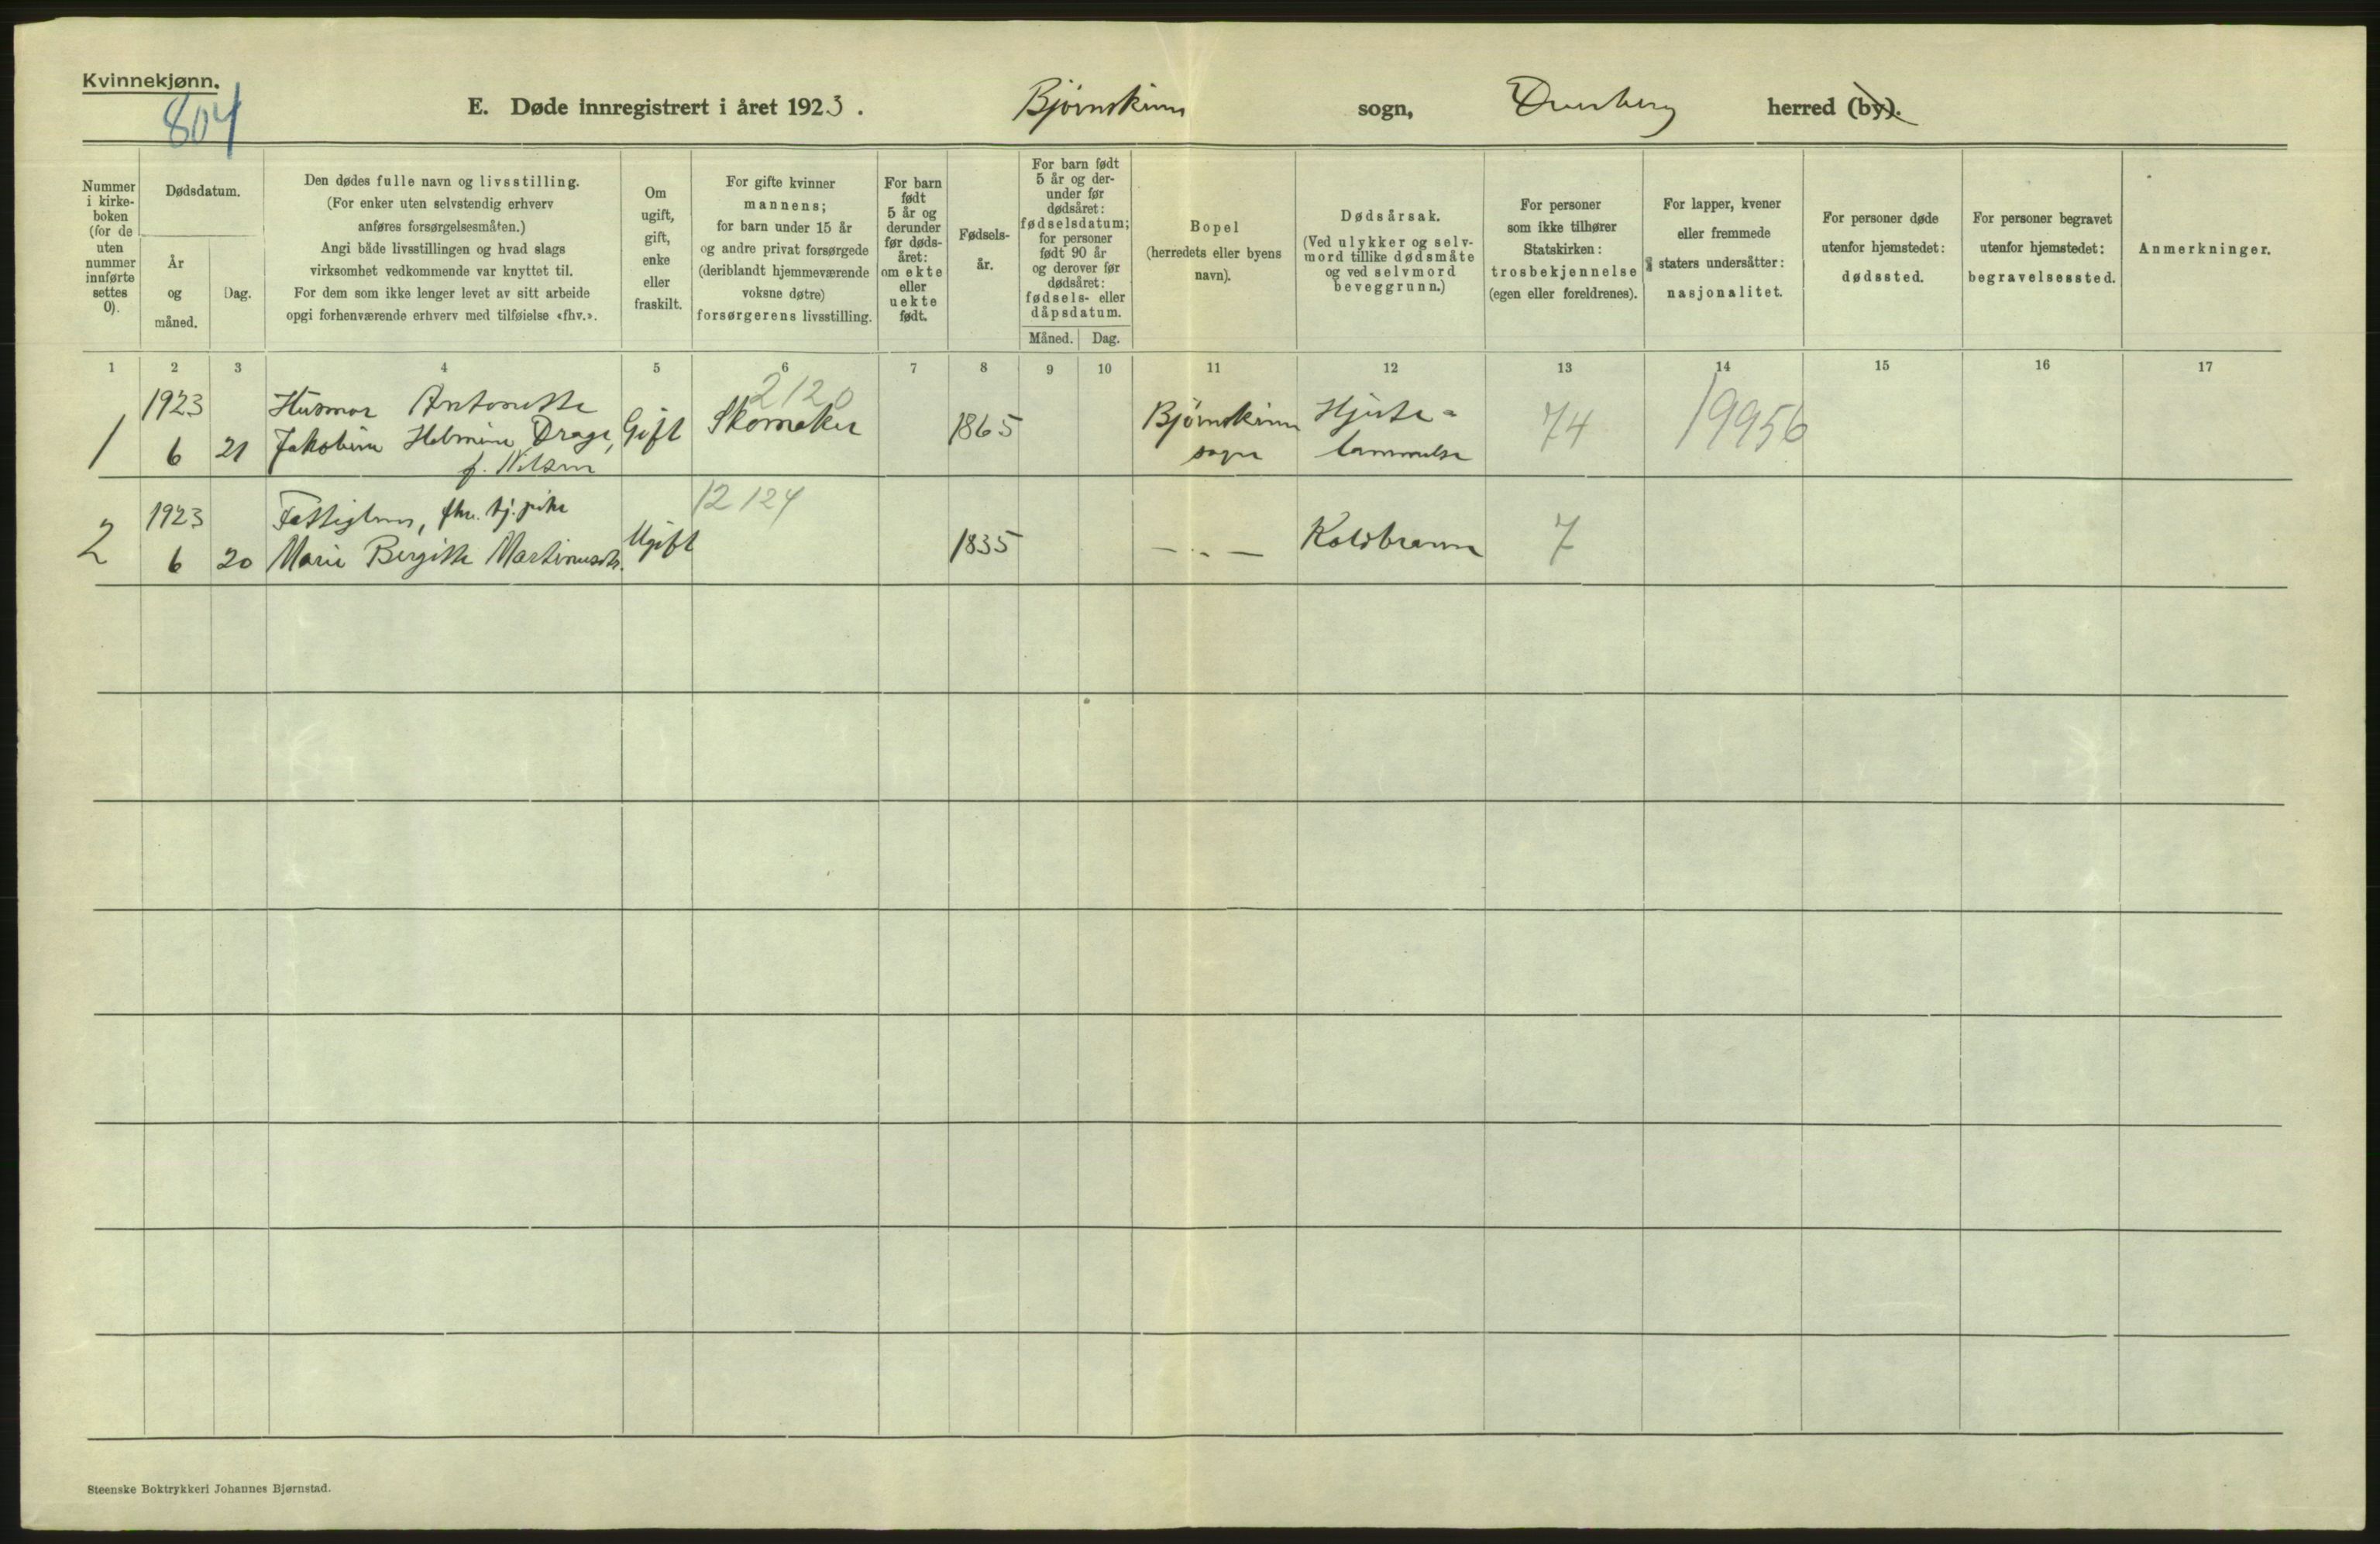 Kvinnekjønn.
804
E. Døde innregistrert i året 1923. Bjørnskinn sogn, Dverberg herred (by).
Nummer i kirke-
boken
(for de
uten
nummer
innførte
settes
0).
Dødsdatum.
År
og
måned.
Dag.
Den dødes fulle navn og livsstilling.
(For enker uten selvstendig erhverv
anføres forsørgelsesmåten.)
Angi både livsstillingen og hvad slags
virksomhet vedkommende var knyttet til.
For dem som ikke lenger levet av sitt arbeide
opgi forhenværende erhverv med tilføielse «fhv.».
Om
ugift,
gift,
enke
eller
fraskilt.
For gifte kvinner
mannens;
for barn under 15 år
og andre privat forsørgede
(deriblandt hjemmeværende
voksne døtre)
forsørgerens livsstilling.
For barn
født
5 år og
derunder
før døds-
året:
om ekte
eller
uekte
født.
Fødsels-
år.
For barn født
5 år og der-
under før
dødsåret:
fødselsdatum;
for personer
født 90 år
og derover før
dødsåret:
fødsels- eller
dåpsdatum.
Måned. Dag.
Bopel
(herredets eller byens
navn).
Dødsårsak.
(Ved ulykker og selv-
mord tillike dødsmåte
og ved selvmord
beveggrunn.)
For personer
som ikke tilhører
Statskirken:
trosbekjennelse
(egen eller foreldrenes).
For lapper, kvener
eller fremmede
staters undersåtter:
nasjonalitet.
For personer døde
utenfor hjemstedet:
dødssted.
For personer begravet
utenfor hjemstedet:
begravelsessted.
Anmerkninger.
1 2 3 4 5 6 7 8 9 10 11 12 13 14 15 16 17
1
1923
6 21
Husmor Antonette
Jakobine Helmine Drage,
f. Nilsen
Gift
2120
Skomaker
1865
Bjørnskinn
sogn
Hjerte-
lammelse
74
19956
2
1923
6 20
Fattiglem, fhv. tj.pike
Marie Bergitte Martinusdtr.
Ugift
12 124
1835
— „ —
Koldbrann
7
Steenske Boktrykkeri Johannes Bjørnstad.